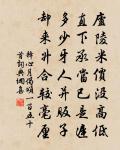 廬陵米價沒高低
直下承當已是遲
多少牙人并販子
卻來升合較毫釐
釋心月偈頌一百五十
首詞典集